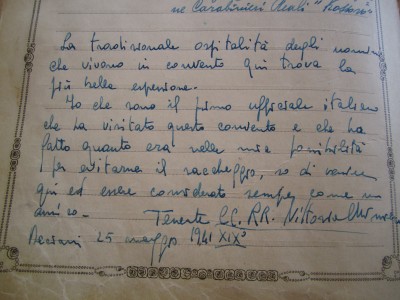 ne Carabinieri Reali "Kossovo"
La tradizionale ospitalità degli uomini
che vivono in convento qui trova la
più bella espressione.
Io che sono il primo ufficiale italiano
che ha visitato questo convento e che ha
fatto quanto era nelle mie possibilità
per evitarne il saccheggio, so di venire
qui ed essere considerato sempre come un
amico.
Tenente CC. RR. Vittorio
Decani 25 maggio 1941 XIX°